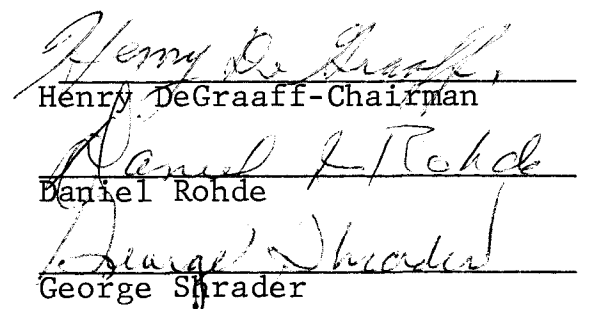 Henry DeGraaff
Henry DeGraaff-Chairman
Daniel L Rohde
Daniel Rohde
George Shrader
George Shrader